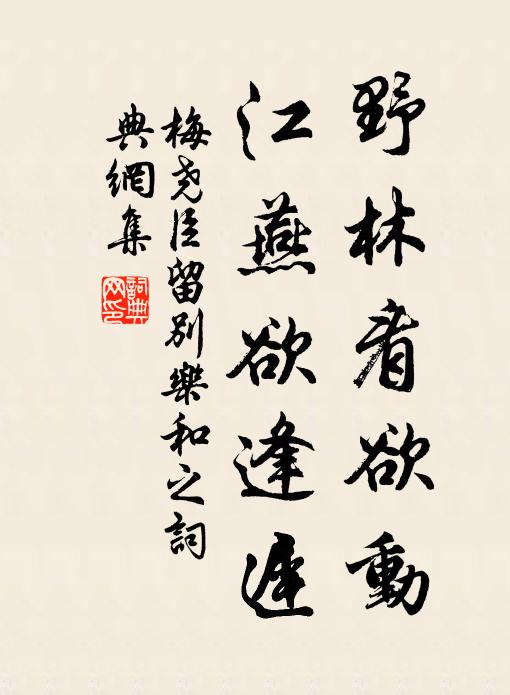 野林看欲動
江燕欲逢遲
梅堯臣留別樂和之詞
典網集
詞典
网印